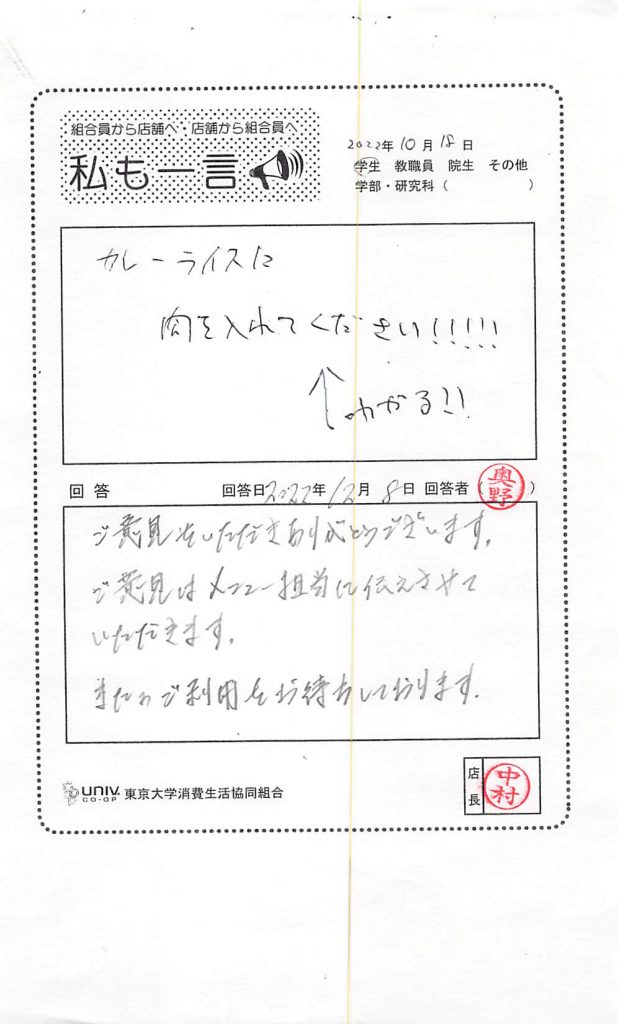 組合員から店舗へ・店舗から組合員へ
私も一言
2022年10月18日
学生 教職員 院生 その他
学部・研究科( )
カレーライスに
肉を入れてください!!!!!
↑わかる!!
回答 回答日2022年12月8日 回答者(奥野)
ご意見をいただきありがとうございます。
ご意見はメニュー担当に伝えさせて
いただきます。
またのご利用をお待ちしております。
UNIV. CO-OP 東京大学消費生活協同組合
店長 中村